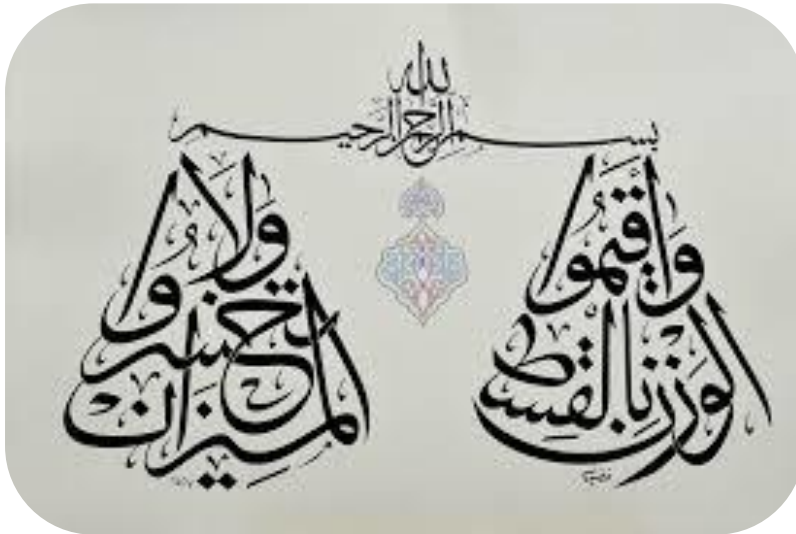 بسم الله الرحمن الرحيم
وَأَقِيمُوا
الْوَزْنَ بِالْقِسْطِ
وَلَا
تُخْسِرُوا
الْمِيزَانَ